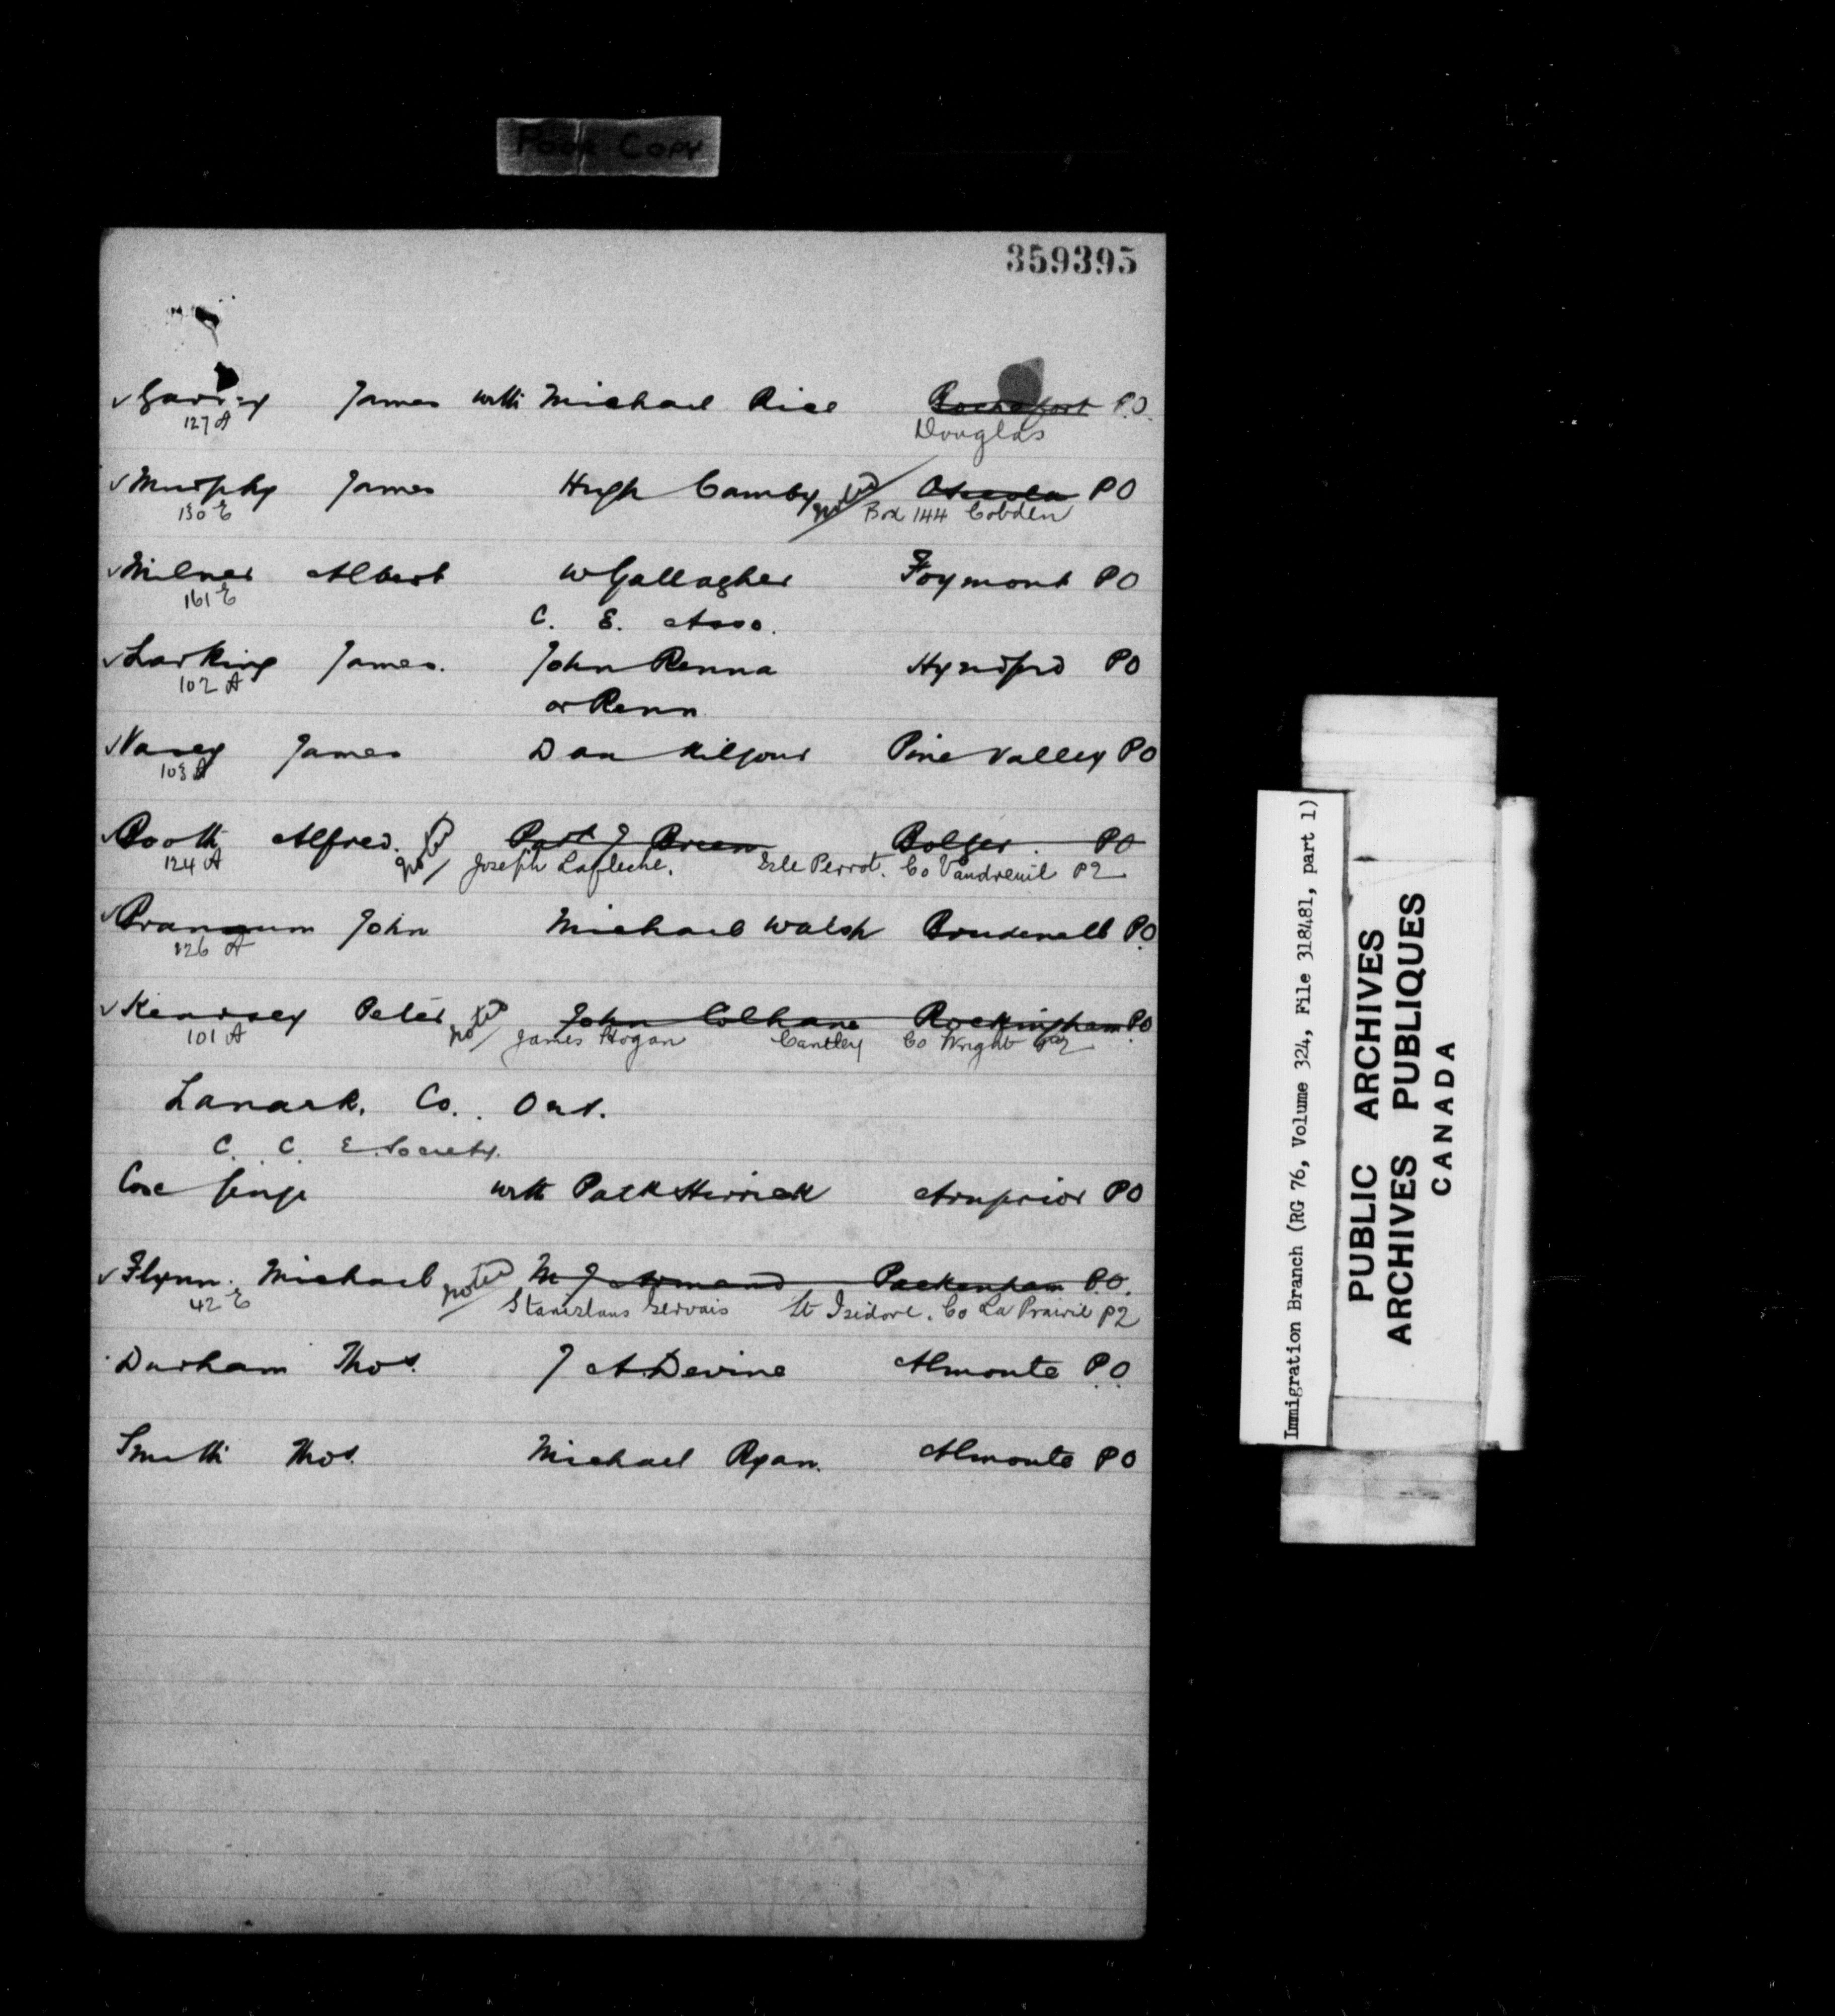 Poor Copy
359395
✓ James with Michael Rice Rochefort P.O.
127 A Douglas
✓ Murphy James Hugh Gamby noted Osceola PO
130 E Box 144 Cobden
✓ Milner Albert W Gallagher Foymont PO
161 E
C. E. Asso.
✓ Larking James. John Renna Hyndford PO
102 A
or Renn
✓ Vasey James Dan Kilgour Pine Valley PO
103 A
✓ Booth Alfred. noted Patk J Breen Bolger PO
124 A Joseph Lafleche. Isle Perrot. Co Vaudreuil PQ
✓ John Michael Walsh Brudenell P.O.
126 A
✓ Peter noted John Colhane Rockingham P.O.
101 A James Hogan Cantley Co Wright PQ
Lanark. Co. Ont.
C. C. E. Society.
Cox with Patk Herrick Arnprior PO
✓ Flynn. Michael noted M J Armand Packenham P.O.
42 E Stanislaus Gervais St Isidore. Co La Prairie PQ
Durham Thos. J A Devine Almonte P.O.
Smith Thos. Michael Ryan. Almonte PO
Immigration Branch (RG 76, Volume 324, File 318481, part 1)
PUBLIC ARCHIVES
ARCHIVES PUBLIQUES
CANADA